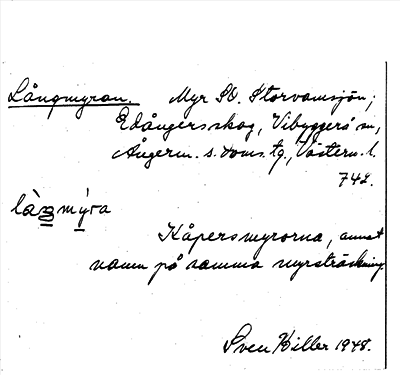 Långmyran. Myr SO. Storvamsjön;
Edångersskog, Vibyggerå sn,
Ångerm. s. doms. tg., Västern. l.
742.
làŋmýra
Kåpersmyrorna, annat
namn på samma myrsträckning
Sven Hiller 1948.